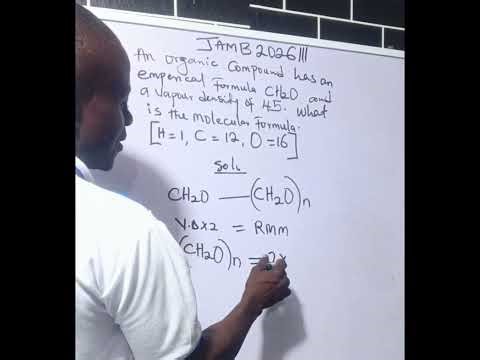 JAMB 2026 III
An organic compound has an
emperical formula CH2O and
a vapour density of 45. What
is the molecular formula.
[H=1, C=12, O=16]
Soln
CH2O — (CH2O)n
V.D x 2 = RMM
(CH2O)n = 2 x